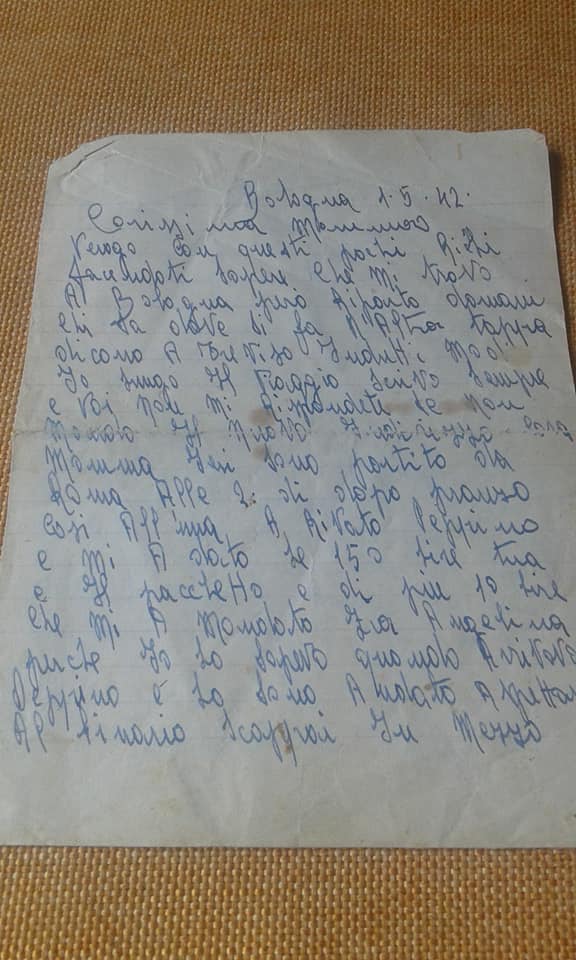 Bologna 1.5.42.
Carissima Mamma
Vengo Con questi pochi Righi
facendoti sapere che mi trovo
A Bologna però Riparto domani
di da dove si fa l'Altra tappa
dicono A Treviso
Io lungo Il Viaggio scrivo sempre
e Voi non mi Rispondete se non
Mando Il Nuovo Indirizzo Cara
Mamma Ieri sono partito da
Roma Alle 2 di dopo pranzo
Così All'una A Rivato Peppino
e Mi A dato le 150 lire tua
e Il pacchetto e di piu 10 lire
Che Mi A Mandato Zia Angelina
perche Io lo sapevo quando Arrivava
Peppino e lo sono Andato Aspettar
Al binario Scappai In Mezzo